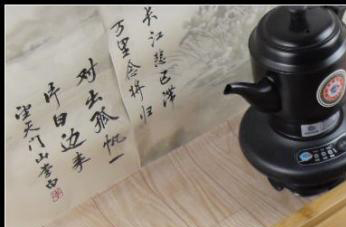 长江悲已滞
万里念将归
对出孤帆一
片日边来
望天门山李白